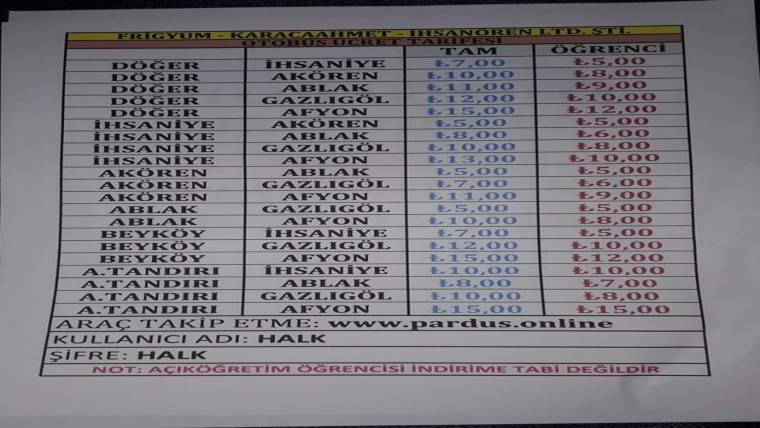 FRİGYUM - KARACAAHMET - İHSANÖREN LTD. ŞTİ.
OTOBÜS ÜCRET TARİFESİ
TAM ÖĞRENCİ
DÖĞER İHSANİYE ₺7,00 ₺5,00
DÖĞER AKÖREN ₺10,00 ₺8,00
DÖĞER ABLAK ₺11,00 ₺9,00
DÖĞER GAZLIGÖL ₺12,00 ₺10,00
DÖĞER AFYON ₺15,00 ₺12,00
İHSANİYE AKÖREN ₺5,00 ₺5,00
İHSANİYE ABLAK ₺8,00 ₺6,00
İHSANİYE GAZLIGÖL ₺10,00 ₺8,00
İHSANİYE AFYON ₺13,00 ₺10,00
AKÖREN ABLAK ₺5,00 ₺5,00
AKÖREN GAZLIGÖL ₺7,00 ₺6,00
AKÖREN AFYON ₺11,00 ₺9,00
ABLAK GAZLIGÖL ₺5,00 ₺5,00
ABLAK AFYON ₺10,00 ₺8,00
BEYKÖY İHSANİYE ₺7,00 ₺5,00
BEYKÖY GAZLIGÖL ₺12,00 ₺10,00
BEYKÖY AFYON ₺15,00 ₺12,00
A.TANDIRI İHSANİYE ₺10,00 ₺10,00
A.TANDIRI ABLAK ₺8,00 ₺7,00
A.TANDIRI GAZLIGÖL ₺10,00 ₺8,00
A.TANDIRI AFYON ₺15,00 ₺15,00
ARAÇ TAKİP ETME: www.pardus.online
KULLANICI ADI: HALK
ŞİFRE: HALK
NOT: AÇIKÖĞRETİM ÖĞRENCİSİ İNDİRİME TABİ DEĞİLDİR